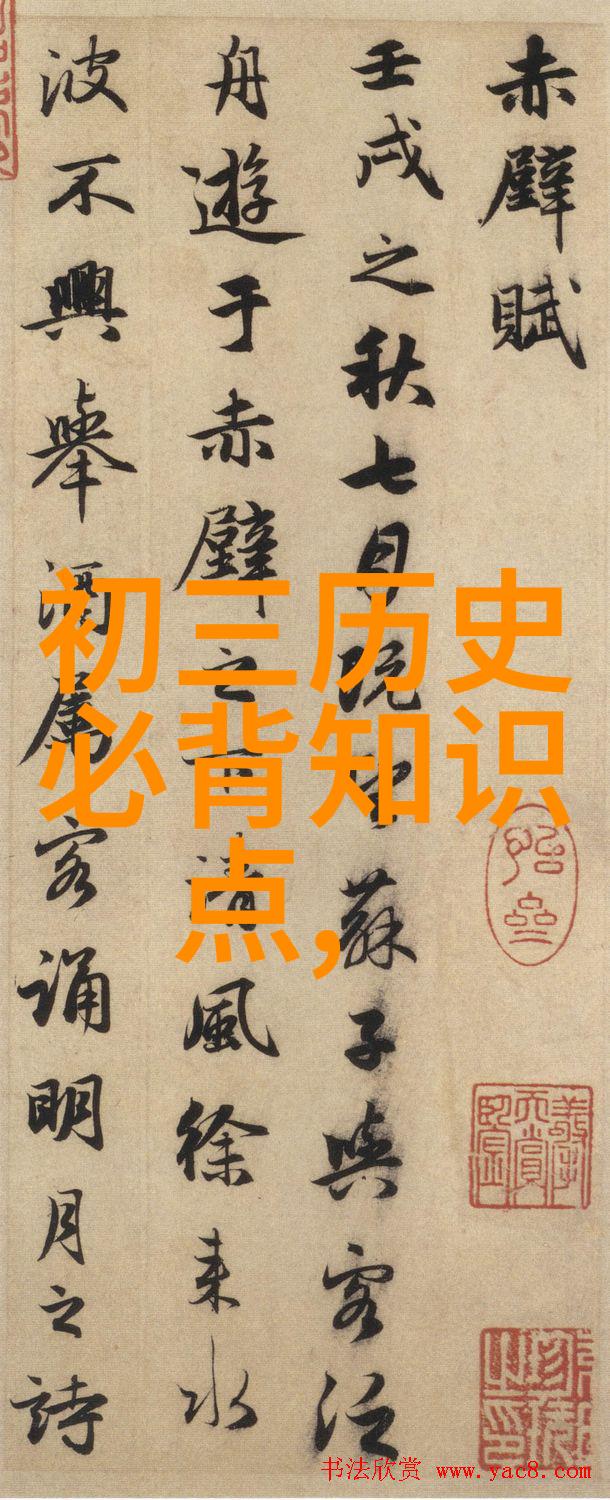 赤壁賦
壬戌之秋七月既望蘇子與客泛
舟遊于赤壁之下清風徐来水
波不興舉酒属客誦明月之詩
初三历史
必背知识
点,
书法欣赏 www.yac8.com